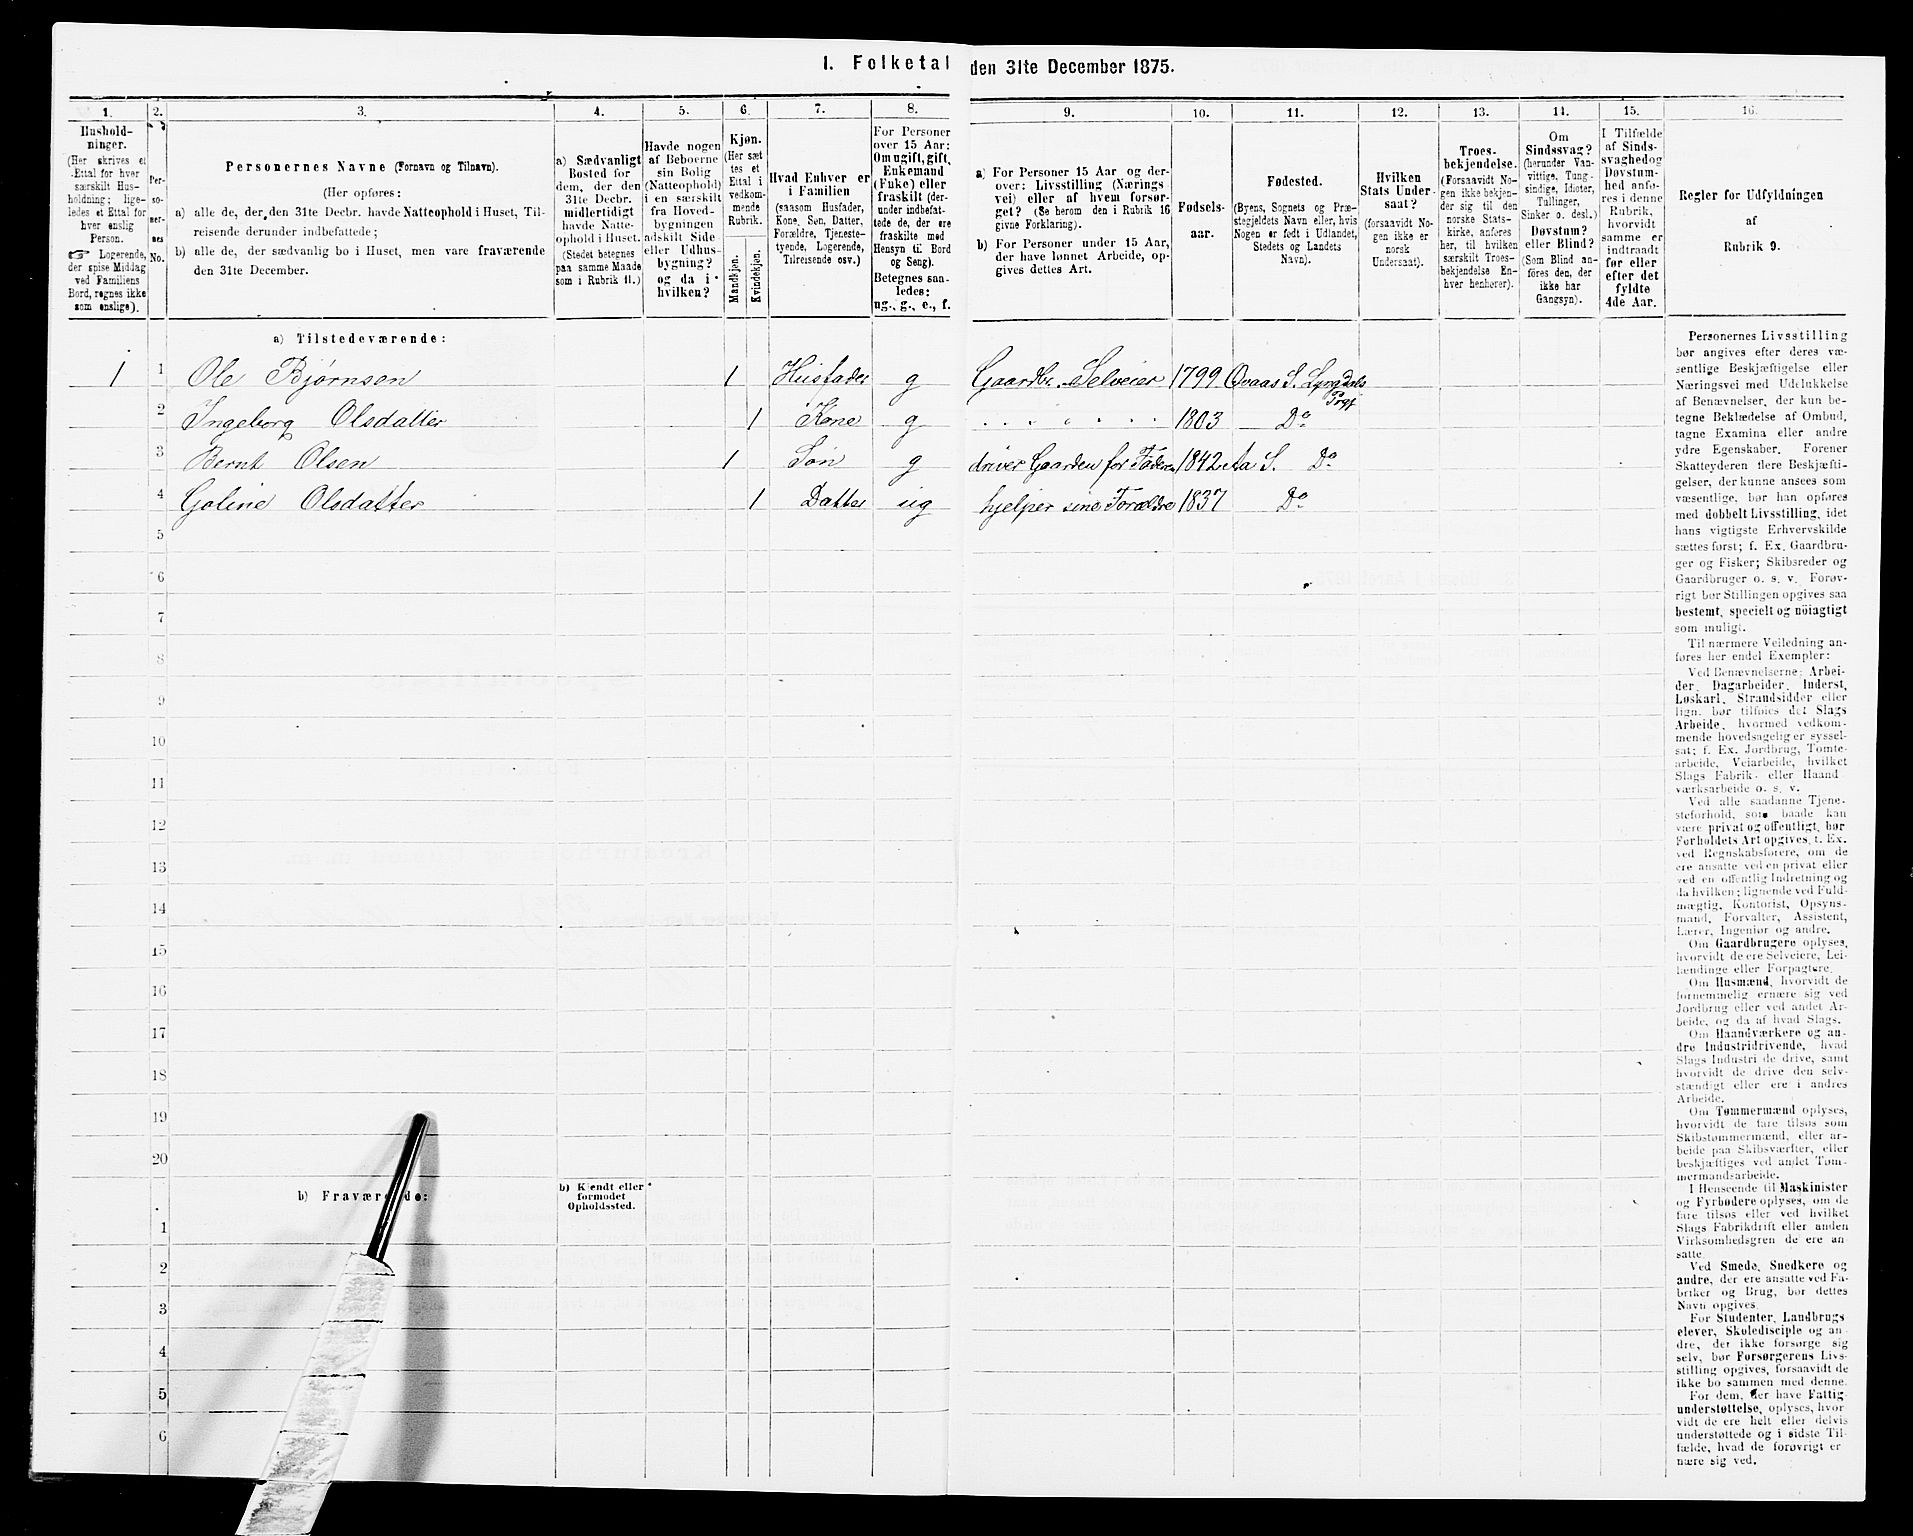 1. Folketal den 31te December 1875.
1.
2.
3.
4.
5.
6.
7.
8.
9.
10.
11.
12.
13.
14.
15.
16.
Hushold-
ninger.
(Her skrives et
Ettal for hver
særskilt Hus-
holdning; lige-
ledes et Ettal for
hver enslig
Person.
☛ Logerende,
der spise Middag
ved Familiens
Bord, regnes ikke
som enslige).
Per-
so-
ner-
nes
No.
Personernes Navne (Fornavn og Tilnavn).
(Her opføres:
a) alle de, der den 31te Decbr. havde Natteophold i Huset, Til-
reisende derunder indbefattede;
b) alle de, der sædvanlig bo i Huset, men vare fraværende
den 31te December.
a) Sædvanligt
Bosted for
dem, der den
31te Decbr.
midlertidigt
havde Natte-
ophold i Huset.
(Stedet betegnes
paa samme Maade
som i Rubrik 11.)
Havde nogen
af Beboerne
sin Bolig
(Natteophold)
i en særskilt
fra Hoved-
bygningen
adskilt Side
eller Udhus-
bygning?
og da i
hvilken?
Kjøn.
(Her sæt
tes et
Ettal i
vedkom-
mende
Rubrik.
Mandkjøn.
Kvindekjøn.
Hvad Enhver er
i Familien
(saasom Husfader,
Kone, Søn, Datter,
Forældre, Tjeneste-
tyende, Logerende,
Tilreisende osv.)
For Personer
over 15 Aar:
Om ugift, gift,
Enkemand
(Enke) eller
fraskilt (der-
under indbefat-
tede de, der ere
fraskilte med
Hensyn til Bord
og Seng).
Betegnes saa-
ledes:
ug., g., e., f.
a) For Personer 15 Aar og der-
over: Livsstilling (Nærings-
vei) eller af hvem forsør-
get? (Se herom den i Rubrik 16
givne Forklaring).
b) For Personer under 15 Aar,
der have lønnet Arbeide, op-
gives dettes Art.
Fødsels-
aar.
Fødested.
(Byens, Sognets og Præ-
stegjeldets Navn eller, hvis
Nogen er født i Udlandet,
Stedets og Landets
Navn).
Hvilken
Stats Under-
saat?
(forsaavidt No-
gen ikke er
norsk
Undersaat).
Troes-
bekjendelse.
(Forsaavidt No-
gen ikke bekjen-
der sig til den
norske Stats-
kirke, anføres
her, til hvilken
særskilt Troes-
bekjendelse En-
hver henhører).
Om
Sindssvag?
(herunder Van-
vittige, Tung-
sindige, Idioter,
Tullinger,
Sinker o. desl.)
Døvstum?
eller Blind?
(Som Blind an-
føres den, der
ikke har
Gangsyn).
I Tilfælde
af Sinds-
svaghed og
Døvstum-
hed anfø-
res i denne
Rubrik,
hvorvidt
samme er
indtraadt
før eller
efter det
fyldte
4de Aar.
Regler for Udfyldningen
af
Rubrik 9.
a) Tilstedeværende:
1 1 Ole Bjørnsen 1 Husfader g Gaardbr. Selveier 1799 Qvaas S. Lyngdals Prgj
2 Ingeborg Olsdatter 1 Kone g 1803 Do
3 Bernt Olsen 1 Søn g driver Gaarden for Faderen 1842 Aa S. Do
4 Goline Olsdatter 1 Datter ug hjelper sine Forældre 1837 Do
5
6
7
8
9
10
11
12
13
14
15
16
17
18
19
20
b) Fraværende:
b) Kjendt eller
formodet
Opholdssted.
1
2
3
4
5
6
Personernes Livsstilling
bør angives efter deres væ-
sentlige Beskjæftigelse eller
Næringsvei med Udelukkelse
af Benævnelser, der kun be-
tegne Beklædelse af Ombud,
tagne Examina eller andre
ydre Egenskaber. Forener
Skatteyderen flere Beskjæfti-
gelser, der kunne ansees som
væsentlige, bør han opføres
med dobbelt Livsstilling, idet
hans vigtigste Erhvervskilde
sættes først; f. Ex. Gaardbru-
ger og Fisker; Skibsreder og
Gaardbruger o. s. v. Forøv-
rigt bør Stillingen opgives saa
bestemt, specielt og nöiagtigt
som muligt.
Til nærmere Veiledning an-
føres her endel Exempler:
Ved Benævnelserne: Arbei-
der, Dagarbeider, Inderst,
Løskarl, Strandsidder eller
lign. bør tilføies det Slags
Arbeide, hvormed vedkom-
mende hovedsagelig er syssel-
sat; f. Ex. Jordbrug, Tomte-
arbeide, Veiarbeide, hvilket
Slags Fabrik- eller Haand-
værksarbeide o. s. v.
Ved alle saadanne Tjene-
steforhold, som baade kan
være privat og offentligt, bør
Forholdets Art opgives, t. Ex.
ved Regnskabsførere, om de
ere ansatte ved en privat eller
ved en offentlig Indretning og
da hvilken; lignende ved Fuld-
mægtig, Kontorist, Opsyns-
mand, Forvalter, Assistent,
Lærer, Ingeniør og andre.
Om Gaardbrugere oplyses,
hvorvidt de ere Selveiere, Lei-
lændinge eller Forpagtere.
Om Husmænd, hvorvidt de
fornemmelig ernære sig ved
Jordbrug eller ved andet Ar-
beide, og da af hvad Slags.
Om Haandværkere og an-
dre Industridrivende, hvad
Slags Industri de drive, samt
hvorvidt de drive den selv-
stændigt eller ere i andres
Arbeide.
Om Tømmermænd oplyses,
hvorvidt de fare tilsøs som
Skibstømmermænd, eller ar-
beide paa Skibsværfter, eller
beskjæftiges ved andet Tøm-
mermandsarbeide.
I Henseende til Maskinister
og Fyrbødere oplyses, om de
fare tilsøs eller ved hvilket
Slags Fabrikdrift eller anden
Virksomhedsgren de ere an-
satte.
Ved Smede, Snedkere og
andre, der ere ansatte ved Fa-
briker og Brug, bør dettes
Navn opgives.
For Studenter, Landbrugs-
elever, Skoledisciple og an-
dre, der ikke forsørge sig
selv, bør Forsørgerens Livs-
stilling opgives, forsaavidt de
ikke bo sammen med denne.
For dem, der have Fattig-
understøttelse, oplyses, hvor-
vidt de ere helt eller delvis
understøttede og i sidste Til-
fælde, hvad de forøvrigt er-
nære sig ved.